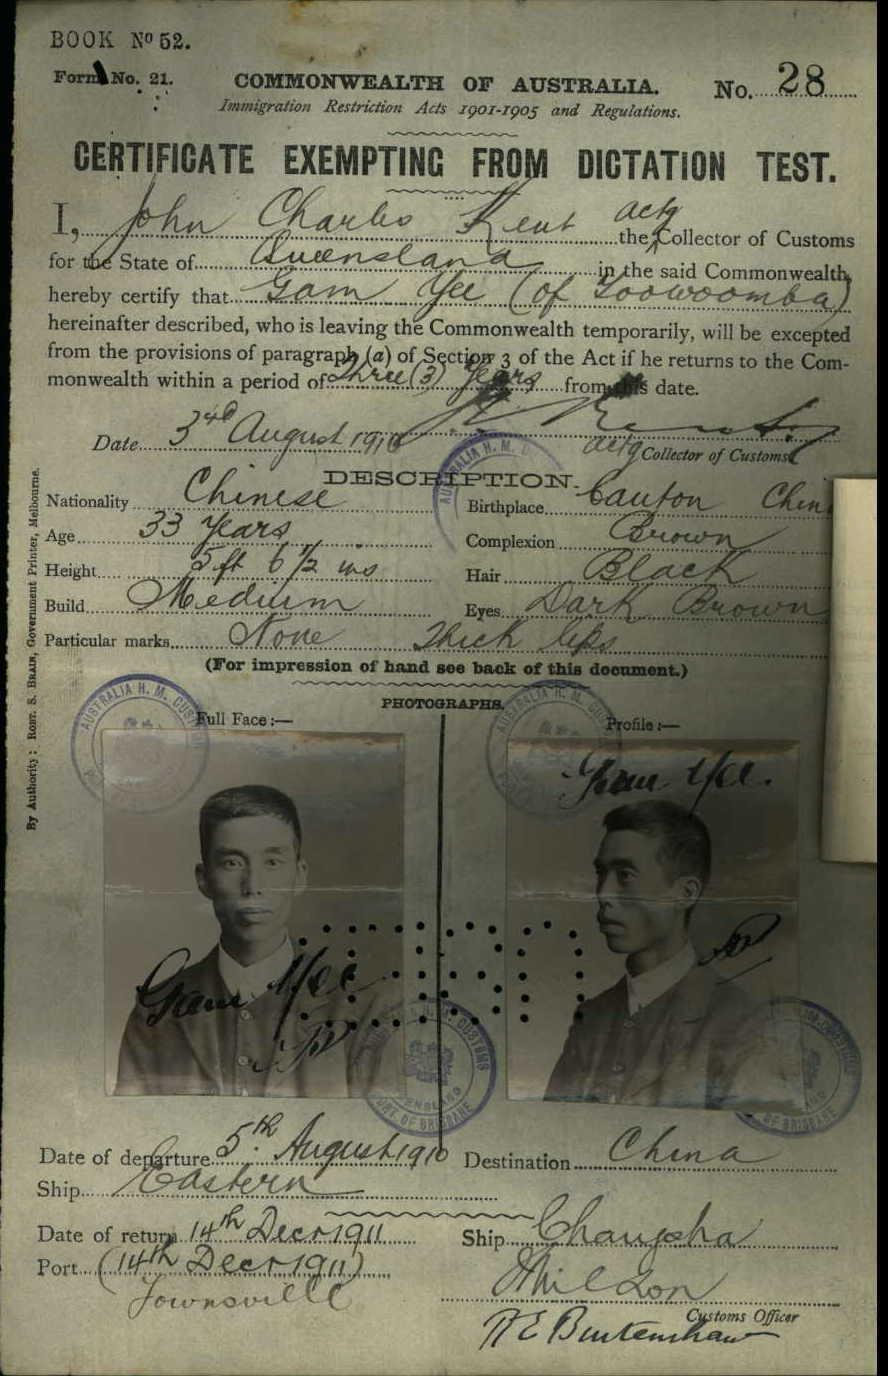 BOOK No 52.
Form No. 21.
COMMONWEALTH OF AUSTRALIA.
No. 28
Immigration Restriction Acts 1901-1905 and Regulations.
CERTIFICATE EXEMPTING FROM DICTATION TEST.
I, John Charles Kent the actg Collector of Customs
for the State of Queensland in the said Commonwealth,
hereby certify that Gam Yee (of Toowoomba)
hereinafter described, who is leaving the Commonwealth temporarily, will be excepted
from the provisions of paragraph (a) of Section 3 of the Act if he returns to the Com-
monwealth within a period of Three (3) Years from this date.
Date 3rd August 1910
actg Collector of Customs
DESCRIPTION.
Nationality Chinese Birthplace Canton Chin
Age 33 Years Complexion Brown
Height 5 ft 6 1/2 ins Hair Black
Build Medium Eyes Dark Brown
Particular marks None Thick lips
(For impression of hand see back of this document.)
PHOTOGRAPHS.
Full Face :— Profile :—
AUSTRALIA H. M. CUSTOMS
PORT OF BRISBANE
Gam Yee.
Gam Yee
Date of departure 5th August 1910 Destination China
Ship Eastern
Date of return 14th Decr 1911 Ship Changsha
Port (14th Decr 1911)
Townsville
Customs Officer
By Authority: ROBT. S. BRAIN, Government Printer, Melbourne.